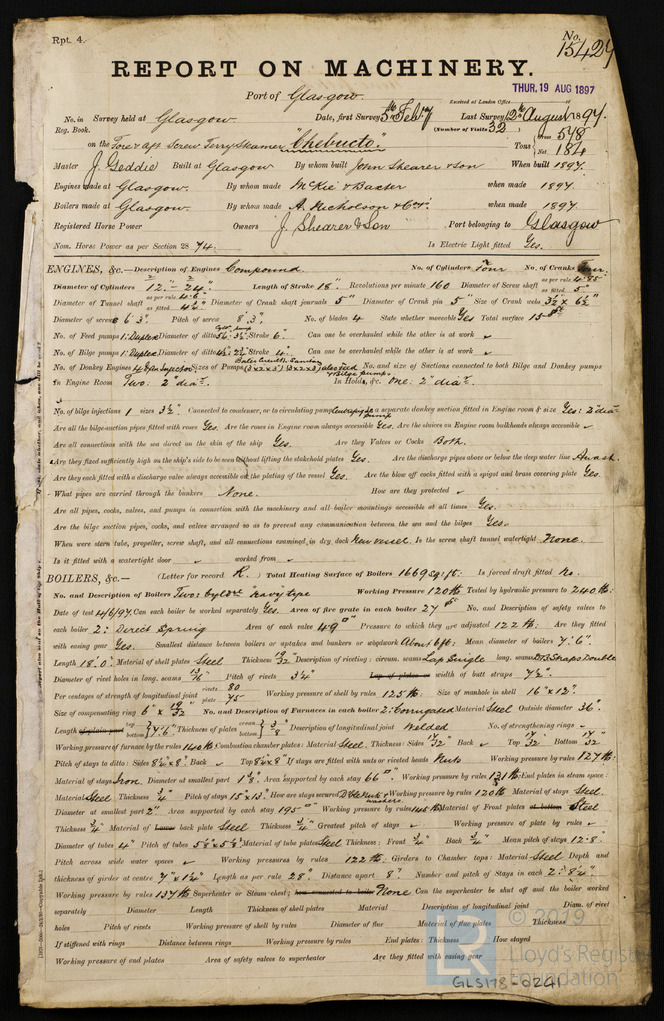 Rpt. 4.
No. 15427
REPORT ON MACHINERY.
THUR. 19 AUG 1897
Port of Glasgow
Received at London Office
No. in Survey held at Glasgow Date, first Survey 5th Feby Last Survey 12th August 1897.
Reg. Book. (Number of Visits 32)
on the Fore & aft Screw Ferry Steamer "Chebucto" Tons Gross 548 Net 184
Master J. Geddie Built at Glasgow By whom built John Shearer & Son When built 1897.
Engines made at Glasgow. By whom made McKie & Baxter when made 1897.
Boilers made at Glasgow. By whom made A. Nicholson & Co. when made 1897.
Registered Horse Power Owners J. Shearer & Son Port belonging to Glasgow
Nom. Horse Power as per Section 28 74. Is Electric Light fitted Yes.
ENGINES, &c.—Description of Engines Compound. No. of Cylinders Four No. of Cranks Four
Diameter of Cylinders 12" - 24" Length of Stroke 18" Revolutions per minute 160 Diameter of Screw shaft as per rule as fitted 5"
Diameter of Tunnel shaft as per rule as fitted Diameter of Crank shaft journals 5" Diameter of Crank pin 5" Size of Crank webs 3½ x 6½"
Diameter of screw 6' 3" Pitch of screw 8' 3" No. of blades 4 State whether moveable Yes Total surface
No. of Feed pumps 1: Duplex Diameter of ditto Stroke 6" Can one be overhauled while the other is at work
No. of Bilge pumps 1: Duplex Diameter of ditto Stroke 4" Can one be overhauled while the other is at work
No. of Donkey Engines Sizes of Pumps No. and size of Suctions connected to both Bilge and Donkey pumps
In Engine Room Two: 2" diar. In Holds, &c. One: 2" dia.
No. of bilge injections 1 sizes 3½" Connected to condenser, or to circulating pump Centrifugal pump Is a separate donkey suction fitted in Engine room & size Yes: 2" dia
Are all the bilge-suction pipes fitted with roses Yes. Are the roses in Engine room always accessible Yes. Are the sluices on Engine room bulkheads always accessible
Are all connections with the sea direct on the skin of the ship Yes. Are they Valves or Cocks Both.
Are they fixed sufficiently high on the ship's side to be seen without lifting the stokehold plates Yes. Are the discharge pipes above or below the deep water line Awash.
Are they each fitted with a discharge valve always accessible on the plating of the vessel Yes. Are the blow off cocks fitted with a spigot and brass covering plate Yes.
What pipes are carried through the bunkers None. How are they protected
Are all pipes, cocks, valves, and pumps in connection with the machinery and all boiler mountings accessible at all times Yes.
Are the bilge suction pipes, cocks, and valves arranged so as to prevent any communication between the sea and the bilges Yes.
When were stern tube, propeller, screw shaft, and all connections examined in dry dock New vessel. Is the screw shaft tunnel watertight None.
Is it fitted with a watertight door worked from
BOILERS, &c.— (Letter for record R.) Total Heating Surface of Boilers 1669 sq. ft. Is forced draft fitted No.
No. and Description of Boilers Two: Cyl. "navy type" Working Pressure 120 lb Tested by hydraulic pressure to 240 lb:
Date of test 4/6/97. Can each boiler be worked separately Yes. Area of fire grate in each boiler 27 No. and Description of safety valves to
each boiler 2: Direct Spring Area of each valve 4.9" Pressure to which they are adjusted 122 lb: Are they fitted
with easing gear Yes. Smallest distance between boilers or uptakes and bunkers or woodwork About 6 ft: Mean diameter of boilers 7'. 6".
Length 18'. 0" Material of shell plates Steel Thickness 19/32 Description of riveting: circum. seams Lap Single long. seams
Diameter of rivet holes in long. seams 13/16" Pitch of rivets 3¼" Lap of plates or width of butt straps 7½".
Per centages of strength of longitudinal joint rivets 80 plate 75 Working pressure of shell by rules 125 lb: Size of manhole in shell 16" x 12".
Size of compensating ring 6" x 19/32 No. and Description of Furnaces in each boiler 2: Corrugated Material Steel Outside diameter 36".
Length of plain part top bottom 7'. 6" Thickness of plates crown bottom 3/8 Description of longitudinal joint Welded No. of strengthening rings
Working pressure of furnace by the rules 140 lb Combustion chamber plates: Material Steel. Thickness: Sides 17/32" Back Top 17/32 Bottom 17/32
Pitch of stays to ditto: Sides 8½"x8". Back Top 8½x8" If stays are fitted with nuts or riveted heads Nuts Working pressure by rules 127 lb:
Material of stays Iron. Diameter at smallest part 1⅛. Area supported by each stay 66 Working pressure by rules 131 lb: End plates in steam space:
Material Steel Thickness ¾" Pitch of stays 15"x13" How are stays secured Dble Nuts & washers. Working pressure by rules 120 lb Material of stays Steel.
Diameter at smallest part 2" Area supported by each stay 195 Working pressure by rules Material of Front plates at bottom Steel
Thickness ¾" Material of Lower back plate Steel Thickness ¾" Greatest pitch of stays Working pressure of plate by rules
Diameter of tubes 4" Pitch of tubes 5½"x5½" Material of tube plates Steel Thickness: Front ¾" Back ¾" Mean pitch of stays 12.8"
Pitch across wide water spaces Working pressures by rules 122 lb: Girders to Chamber tops: Material Steel Depth and
thickness of girder at centre 7" x 1¼" Length as per rule 28" Distance apart 8" Number and pitch of Stays in each 2: 8¼".
Working pressure by rules 137 lb Superheater or Steam chest; how connected to boiler None Can the superheater be shut off and the boiler worked
separately Diameter Length Thickness of shell plates Material Description of longitudinal joint Diam. of rivet
holes Pitch of rivets Working pressure of shell by rules Diameter of flue Material of flue plates Thickness
If stiffened with rings Distance between rings Working pressure by rules End plates: Thickness How stayed
Working pressure of end plates Area of safety valves to superheater Are they fitted with easing gear
© 2019
LR
Lloyd's Register
Foundation
GLS178-0241